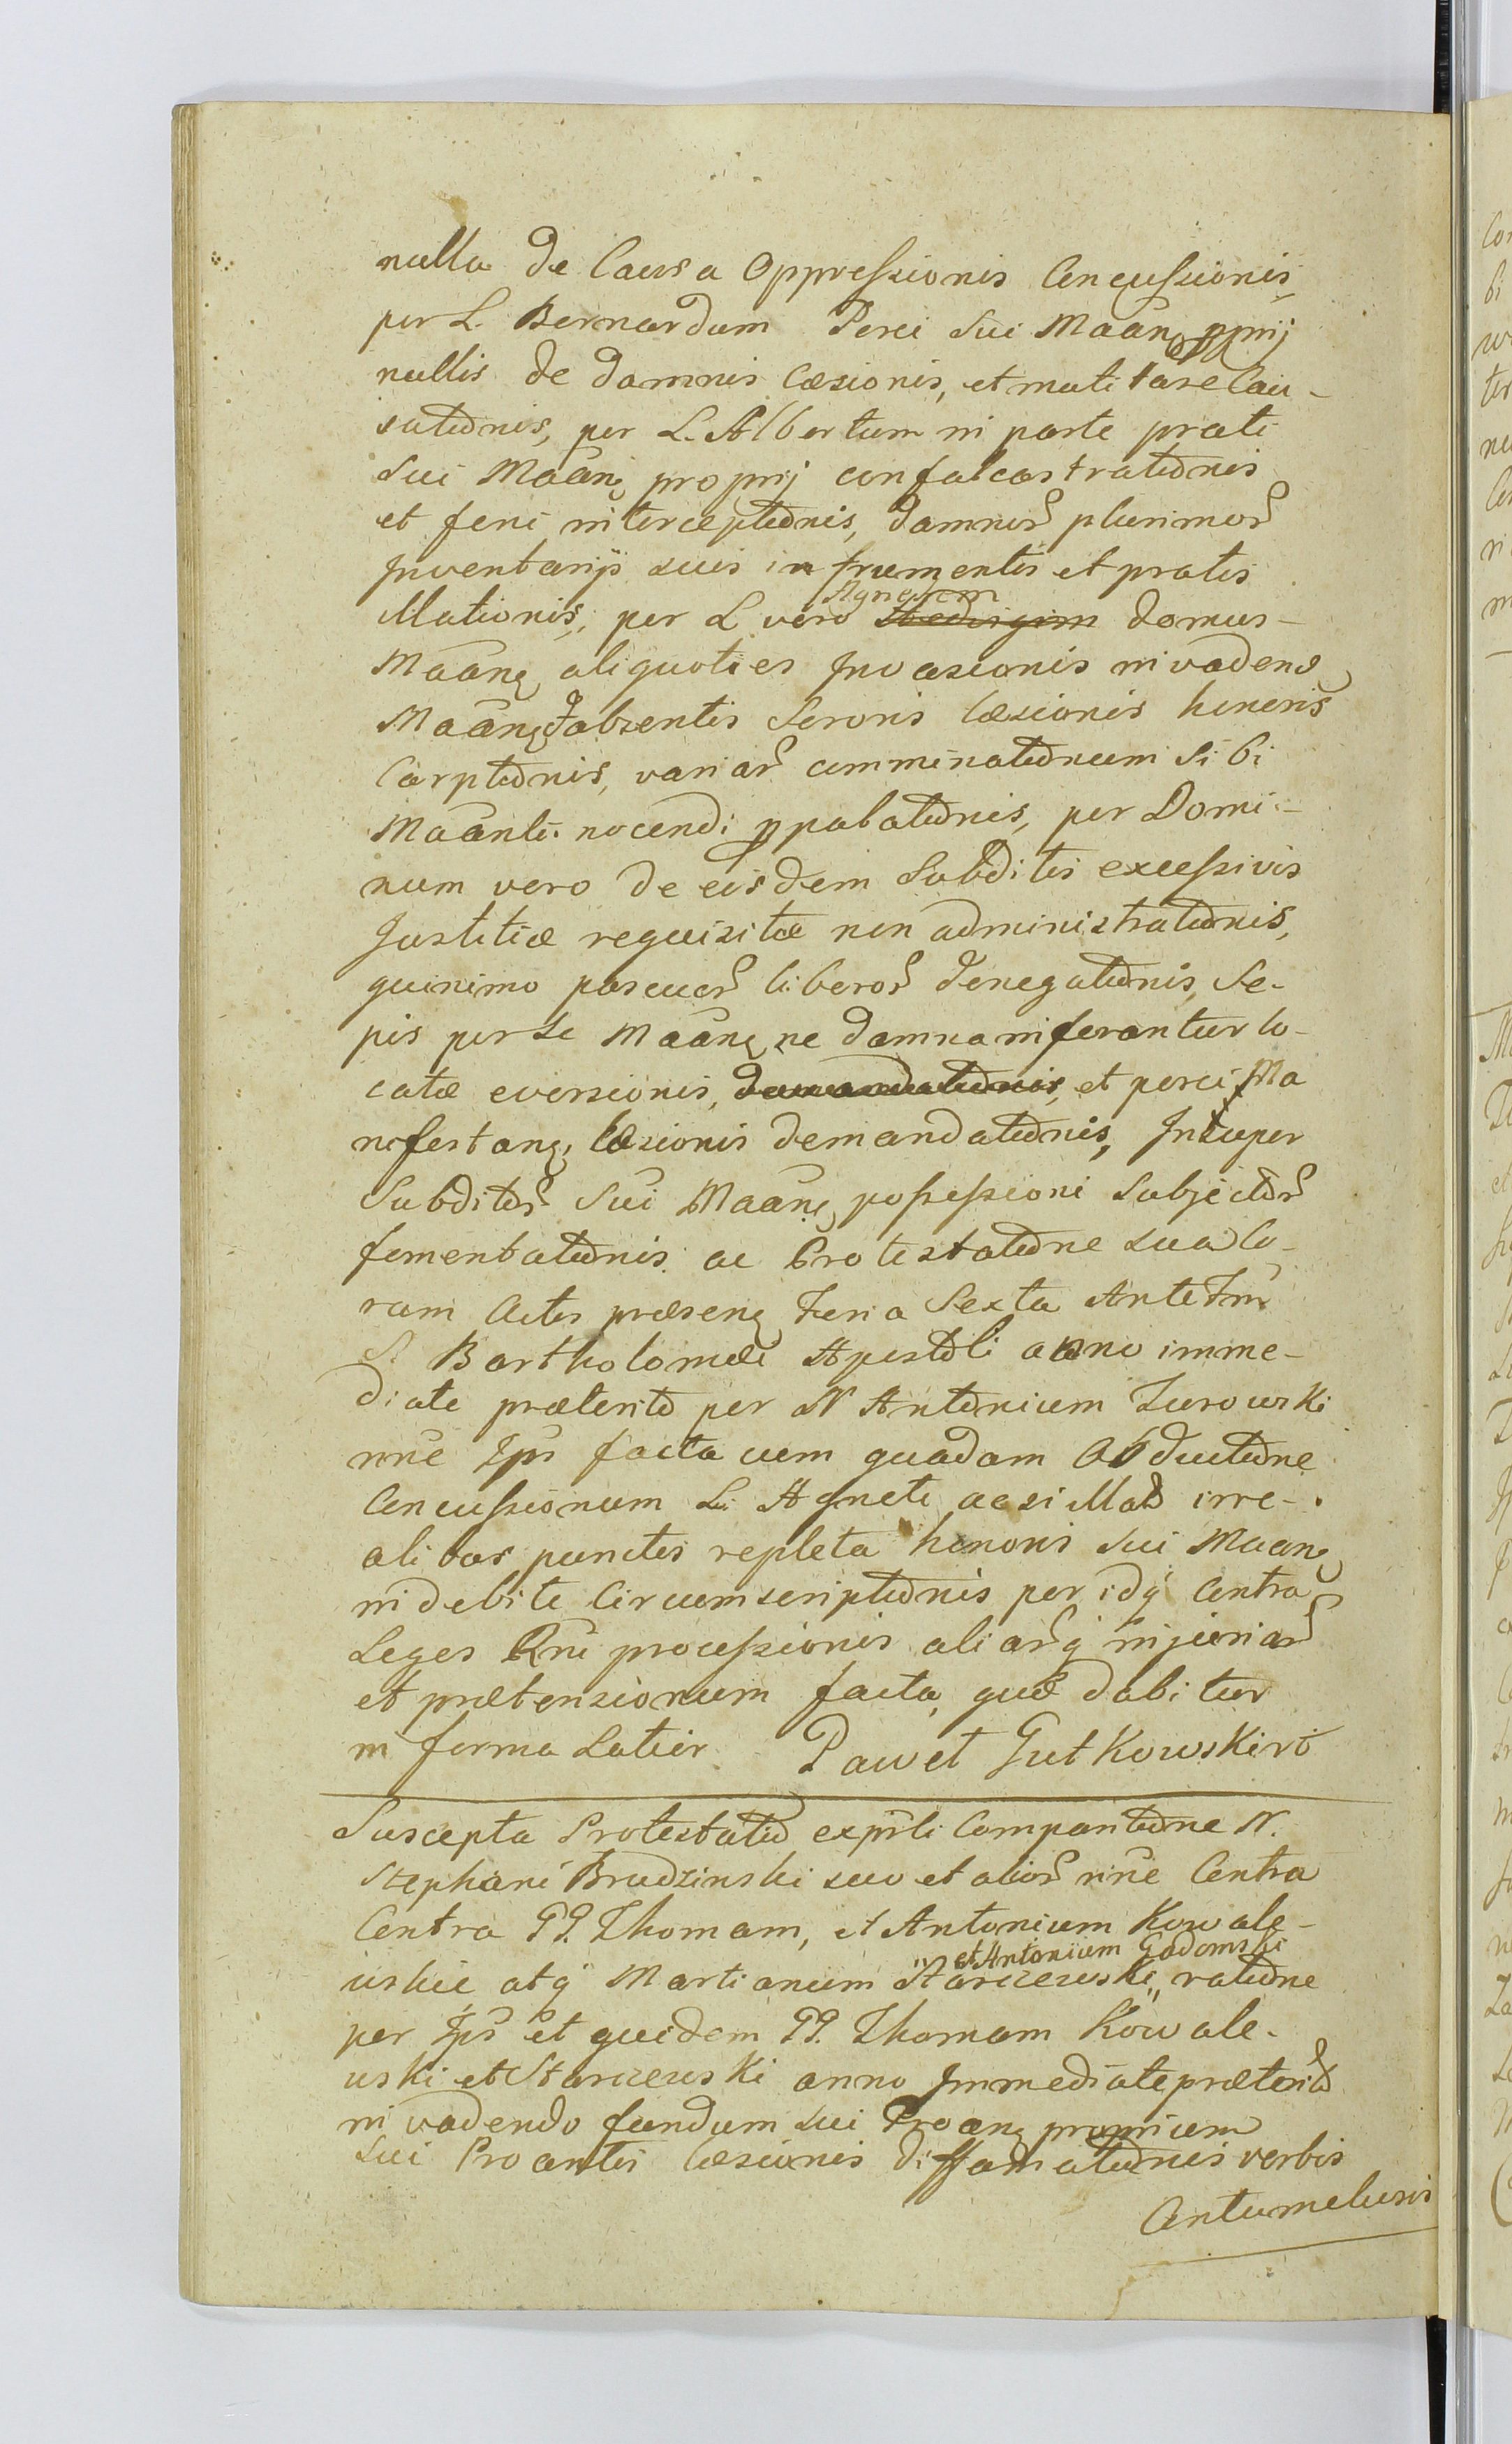 nulla de Causa Oppressionis Concussionis
per L. Bernardum Porci sui Maanq pprij
nullis de damnis læsionis, et mutilare Cau-
sationis, per L. Albertum in parte prati
sui Maanq proprij confalcastrationis
et feni interceptionis, damnor plurimor
Inventarijs suis in frumentis et pratis
illationis, per L vero Agnetem domus
Maanq aliquoties Invasionis invadenq
Maanq absentis Sororis læsionis honoris
Carptionis, variar comminationum sibi
Maanti nocendi ppalationis, per Domi-
num vero de eisdem Subditis excessivis
Justitiæ requisitæ non administrationis,
quinimo pascuor liberor denegationis, Se-
pis per se Maanq ne damna inferantur lo-
catæ eversionis, et porci Ma
nifestanq, læsionis demandationis, Insuper
Subditor sui Maanq possessioni Subjector
fomentationis ac Protestatione sua Co-
ram Actis præsenq Feria Sexta Ante Fm
S. Bartholomæi Apostoli anno imme-
diate præterito per N Antonium Zurowski
nne Ips facta cum quadam Obductione
Concussionum L. Agneti ac si illato irre-
alibus punctis repleta honoris sui Maanq
indebite Circumscriptionis per idq Contra
Leges Rni processionis aliarq injuriar
et prætensionum facta, quæ dabitur
in forma Latior Paweł Gutkowski rō
Suscepta Protestatio exprli Comparitione N.
Stephani Brudzinski suo et alior nne Contra
Contra GG. Thomam, et Antonium Kowale-
wskie atq Martianum Starczewski, et Antonium Gadomski ratione
per Ips et quidem GG. Thomam Kowale-
wski et Starczewski anno Immediate præterito
invadendo fundum sui Proanq proprium
sui Proantis læsionis diffamationis verbis
Contumeliosis